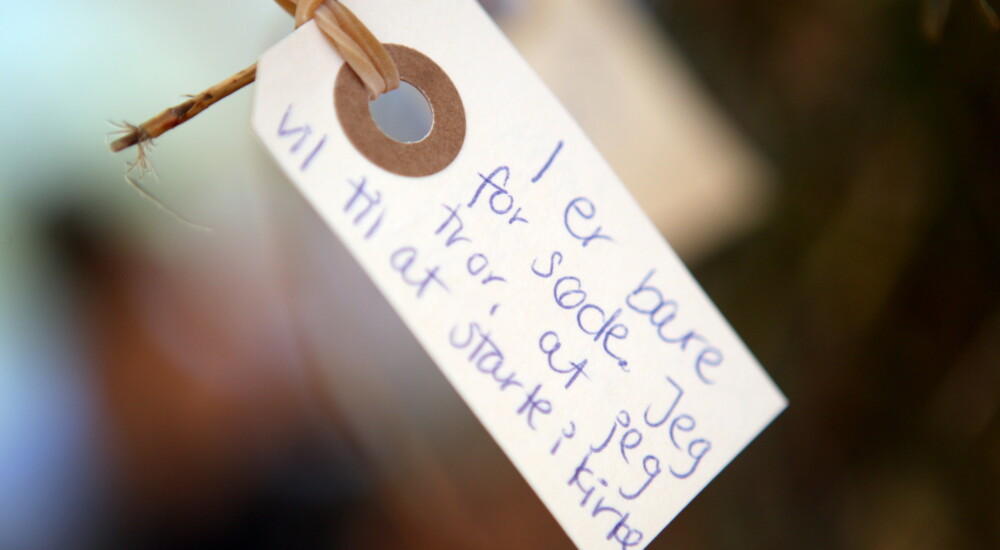 I er bare
for søde. Jeg
tror, at jeg
vil til at starte i kirke